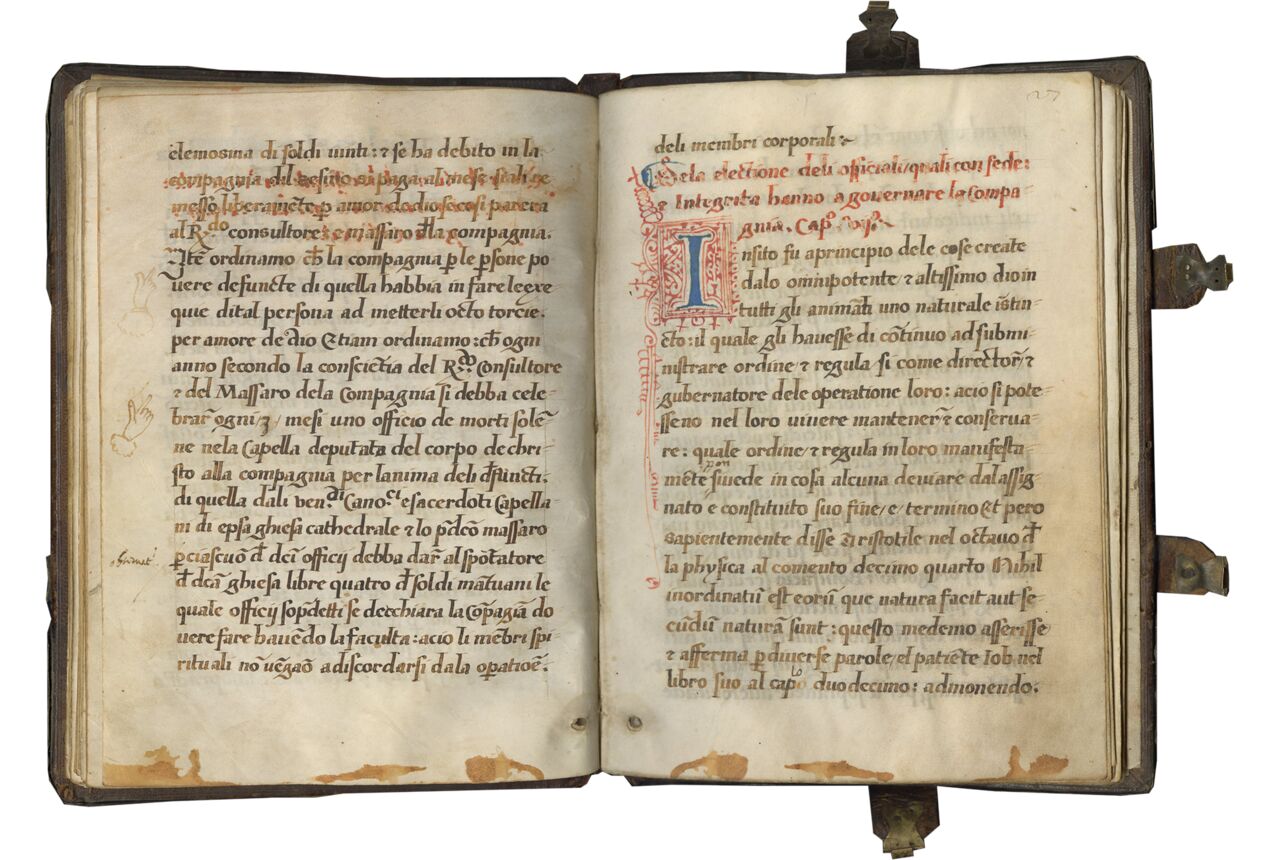 elemosina di soldi uinti: ⁊ se ha debito in la
compagnia dil
messo liberamẽte ꝑ amor de dio se cosi parera
al R.do consultore ⁊ e massaro đla compagnia.
Itẽ ordinamo ch̃ la compagnia ꝑ le ꝑsone po
uere defuncte di quella habbia in fare le exe
quie di tal persona ad metterli octo torcie.
per amore de dio Etiam ordinamo: ch̃ ogni
anno secondo la conscientia del R.do Consultore
⁊ del Massaro dela Compagnia si debba cele=
brar̃ ogni 3/ mesi uno officio de morti solẽ=
ne nela Capella deputata del corpo de chri=
sto alla compagnia per lanima deli đfuncti.
di quella dali ven.di Cano.ci e sacerdoti Capella
ni di epsa ghiesa cathedrale ⁊ lo pďco massaro
ꝑ ciascuo đ dcĩ officij debba dar̃ al
đ dcã ghiesa libre quatro đ soldi mãtuani le
quale officij sopdetti se decchiara la Cõpagiã do
uere fare hauẽdo la faculta: acio li mẽbri spi=
rituali nõ uẽgaõ a discordarsi dala oꝑatioẽ.
27
deli membri corporali:~
Dela electione deli officiali/quali con fede:
⁊ Integrita hanno a gouernare la Compa
gnia. Capº. xvjº.
Insito fu a principio dele cose create
dalo omnipotente ⁊ altissimo dio in
tutti gli animãti uno naturale istin=
cto: il quale gli hauesse di cõtinuo ad submi=
nistrare ordine/⁊ regula si come director̃/⁊
gubernatore dele operatione loro: acio si pote=
sseno nel loro uiuere mantener̃ ⁊ conserua=
re: quale ordine/⁊ regula in loro manifesta=
mẽte si uede in cosa alcuna deuiare dal assig=
nato e constituito suo fine/e/termino Et pero
sapientemente disse Aristotile nel octauo đ
la physica al comento decimo quarto Nihil
inordinatũ est eorũ que natura facit aut se=
cũdũ naturã sunt: questo medemo asserisse
⁊ afferma ꝑ diuerse parole/el patiẽte Iob nel
libro suo al capº duodecimo: admonendo.